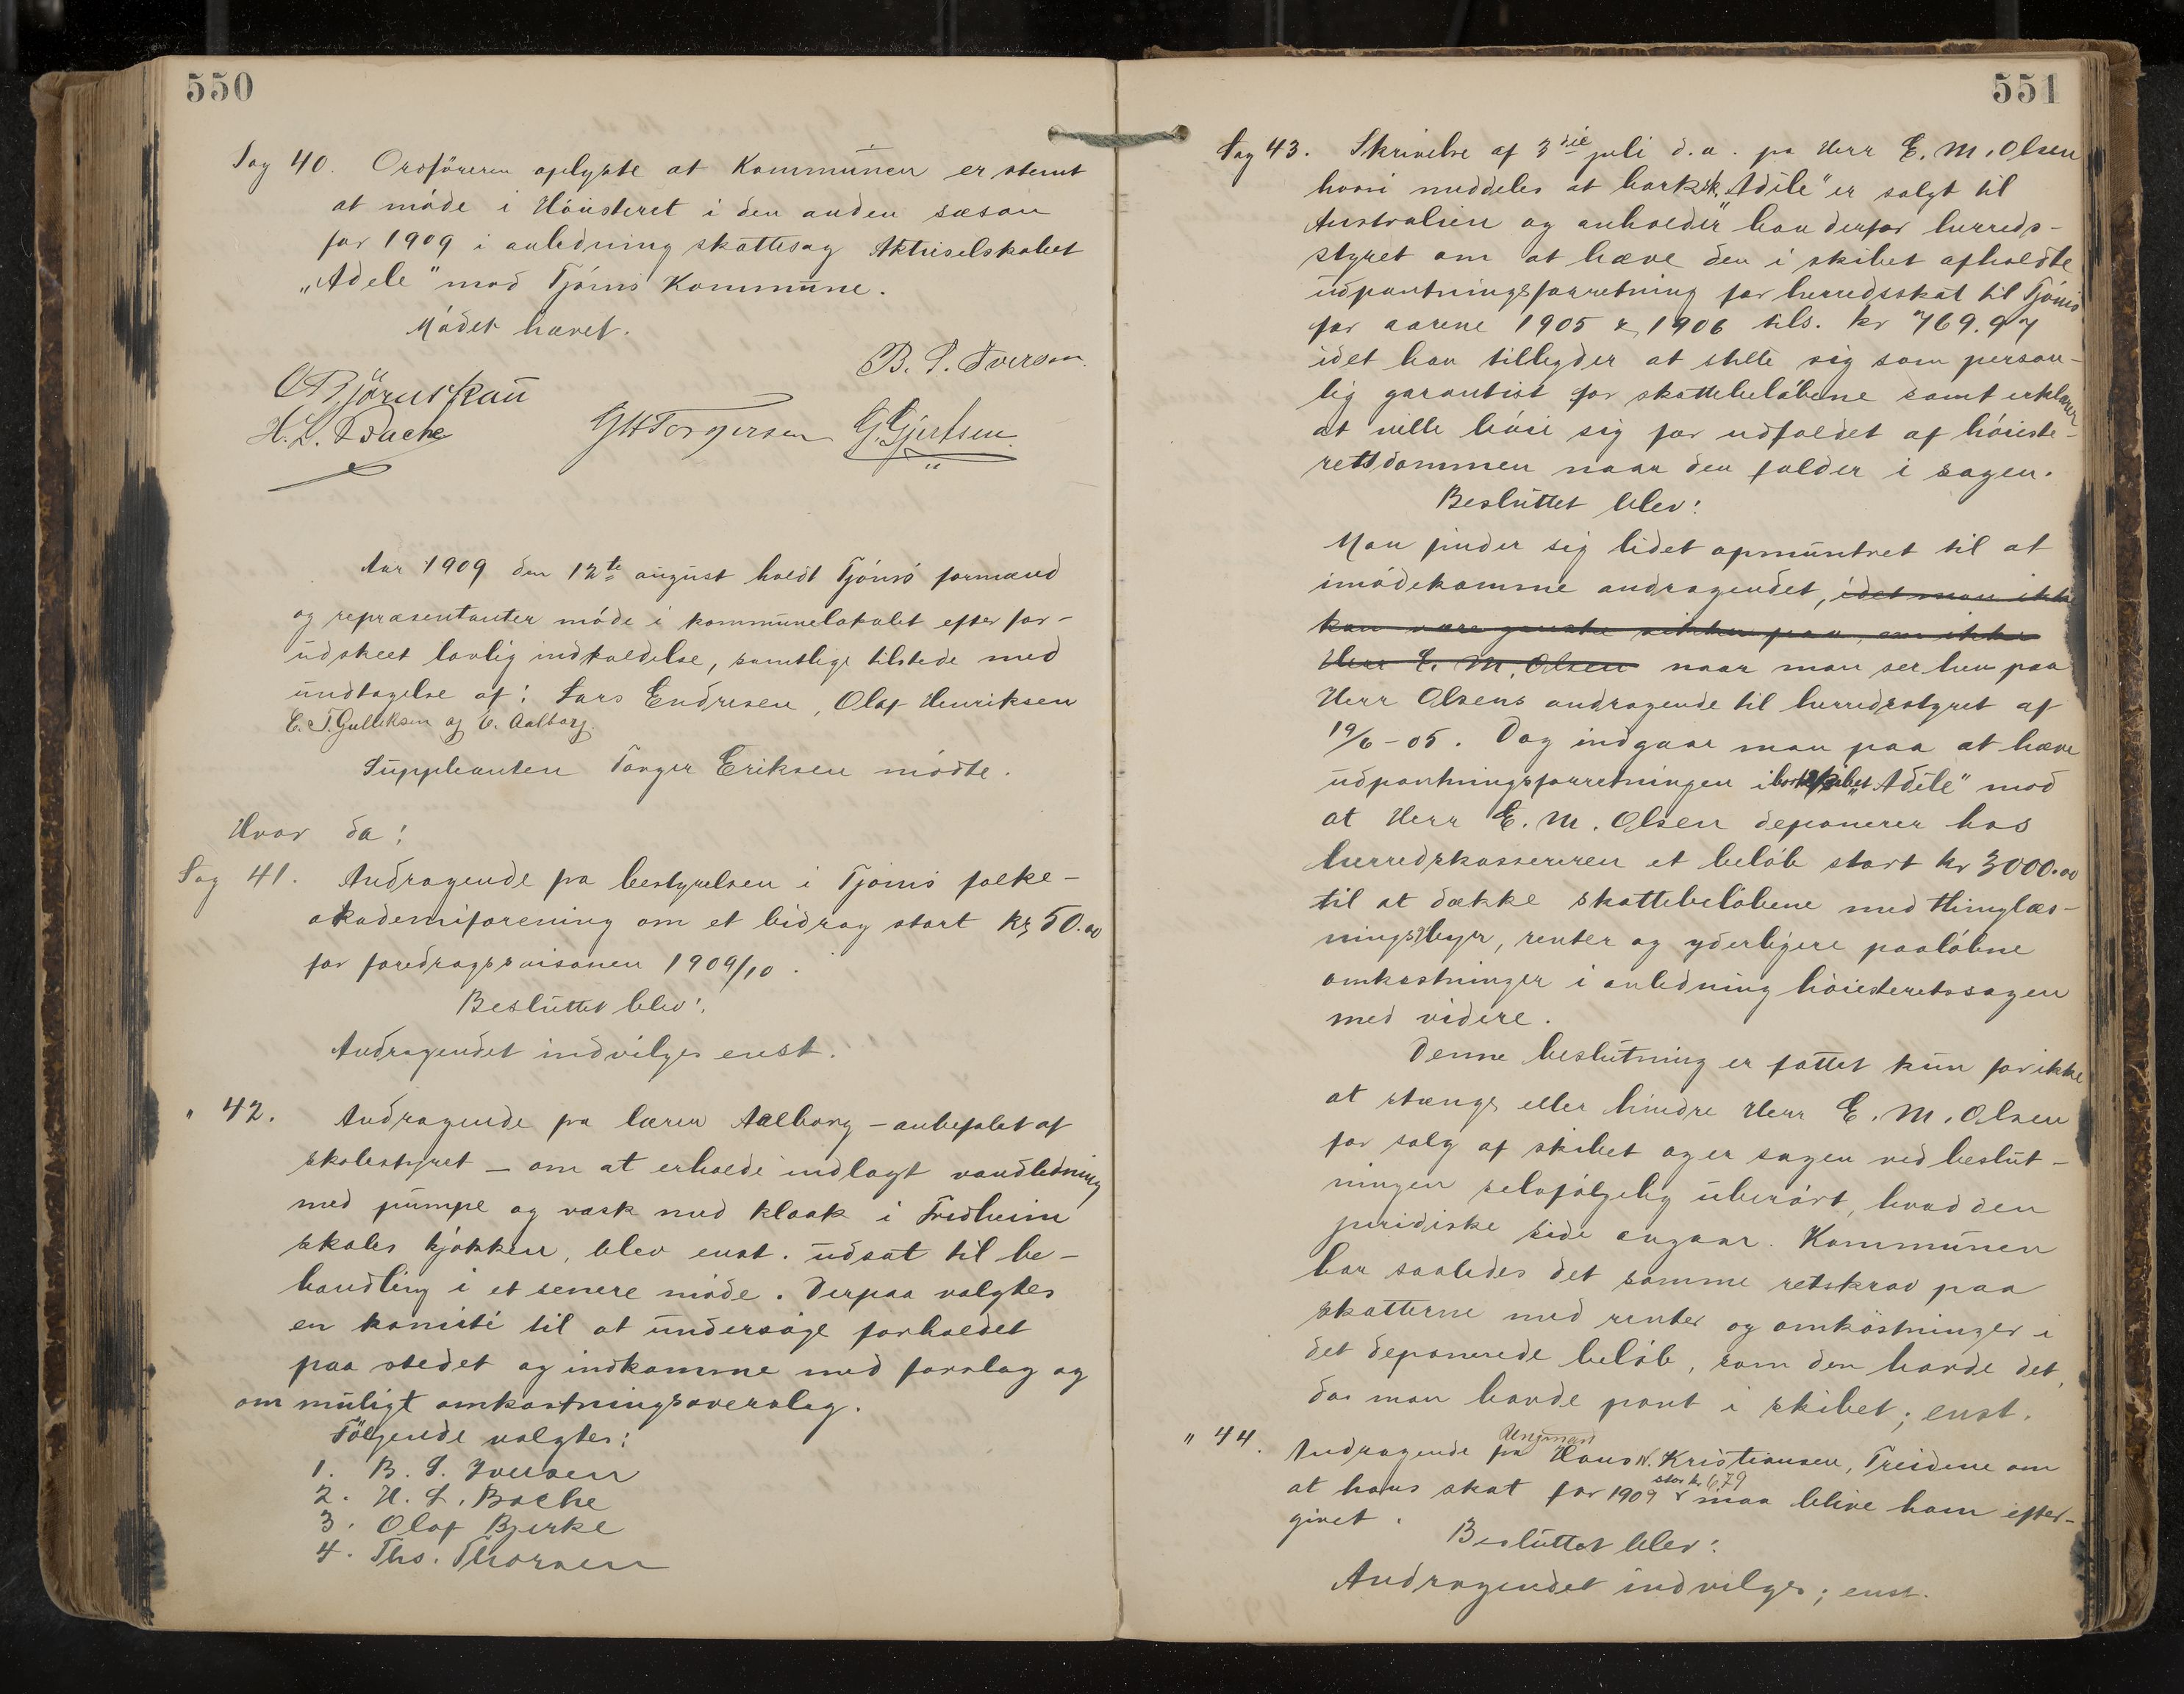 550
Sag 40. Ordföreren oplyste at Kommunen er stemt
at möde i Höiesteret i den anden sæson
for 1909 i anledning skattesag Aktieselskabet
„Adele" mod Tjömö Kommune.
Mödet hævet.
B. S. Iversen
O Björnskau
H. L. Bache
G H Torgersen
G. Gjertsen
Aar 1909 den 12te august holdt Tjömö formænd
og repræsentanter möde i kommunelokalet efter for-
udskeet lovlig indkaldelse, samtlige tilstede med
undtagelse af: Lars Endresen, Olaf Henriksen
E. T. Gulliksen og C. Aalborg.
Suppleanten Torger Eriksen mödte.
Hvor da:
Sag 41. Andragende fra bestyrelsen i Tjömö folke-
akademiforening om et bidrag stort kr 50.00
for foredragssaisonen 1909/10.
Besluttet blev:
Andragendet indvilges enst.
" 42. Andragende fra lærer Aalborg – anbefalet af
skolestyret – om at erholde indlagt vandledning
med pumpe og vask med kloak i Fredheim
skoles kjökken, blev enst. udsat til be-
handling i et senere möde. Derpaa valgtes
en komité til at undersöge forholdet
paa stedet og indkomme med forslag og
om muligt omkostningsoverslag.
Fölgende valgtes:
1. B. S. Iversen
2. H. L. Bache
3. Olaf Bjerke
4. Ths. Thorsen
551
Sag 43. Skrivelse af 3die juli d.a. fra Herr E. M. Olsen
hvori meddeles at barksk. „Adéle" er solgt til
Australien og anholder han derfor herreds-
styret om at hæve den i skibet afholdte
udpantningsforretning for herredsskat til Tjömö
for aarene 1905 & 1906 tils. kr 769.97
idet han tilbyder at stille sig som person-
lig garantist for skattebelöbene samt erklærer
at ville böie sig for udfaldet af höieste-
rettsdommen naar den falder i sagen.
Besluttet blev:
Man finder sig lidet opmuntret til at
imödekomme andragendet, idet man ikke
kan være ganske sikker paa, om ikke
Herr E. M. Olsen naar man ser hen paa
Herr Olsens andragende til herredsstyret af
19/6-05. Dog indgaar man paa at hæve
udpantningsforretningen i barkskibet „Adéle" mod
at Herr E. M. Olsen deponerer hos
herredskassereren et belöb stort kr 3000.00
til at dække skattebelöbene med thinglæs-
ningsgebyr, renter og yderligere paalöbne
omkostninger i anledning höiesteretssagen
med videre.
Denne beslutning er fattet kun for ikke
at stænge eller hindre Herr E. M. Olsen
for salg af skibet og er sagen ved beslut-
ningen selvfölgelig uberört, hvad den
juridiske side angaar. Kommunen
har saaledes det samme retskrav paa
skatterne med renter og omkostninger i
det deponerede belöb, som den havde det,
da man havde pant i skibet; enst.
" 44. Andragende fra Ungmand Hans N. Kristiansen, Treidene om
at hans skat for 1909 stor kr 6,79 maa blive ham efter-
givet.
Besluttet blev:
Andragendet indvilges; enst.